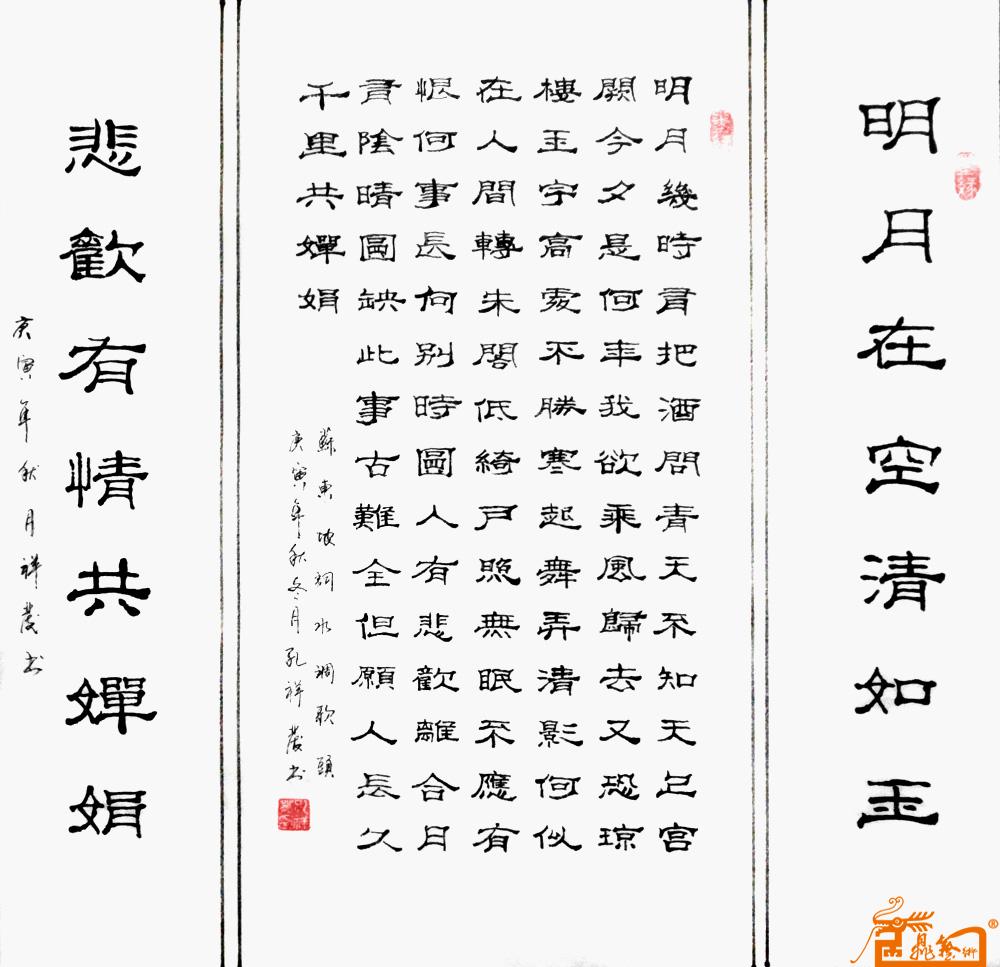 明月在空清如玉
明月幾時有把酒問青天不知天上宮
闕今夕是何年我欲乘風歸去又恐琼
樓玉宇高處不勝寒起舞弄清影何似
在人間轉朱閣低綺戶照無眠不應有
恨何事長向別時圓人有悲歡離合月
有陰晴圓缺此事古難全但願人長久
千里共嬋娟
蘇東坡詞水調歌頭
庚寅年秋冬月孔祥书
悲歡有情共嬋娟
庚寅年秋月祥书